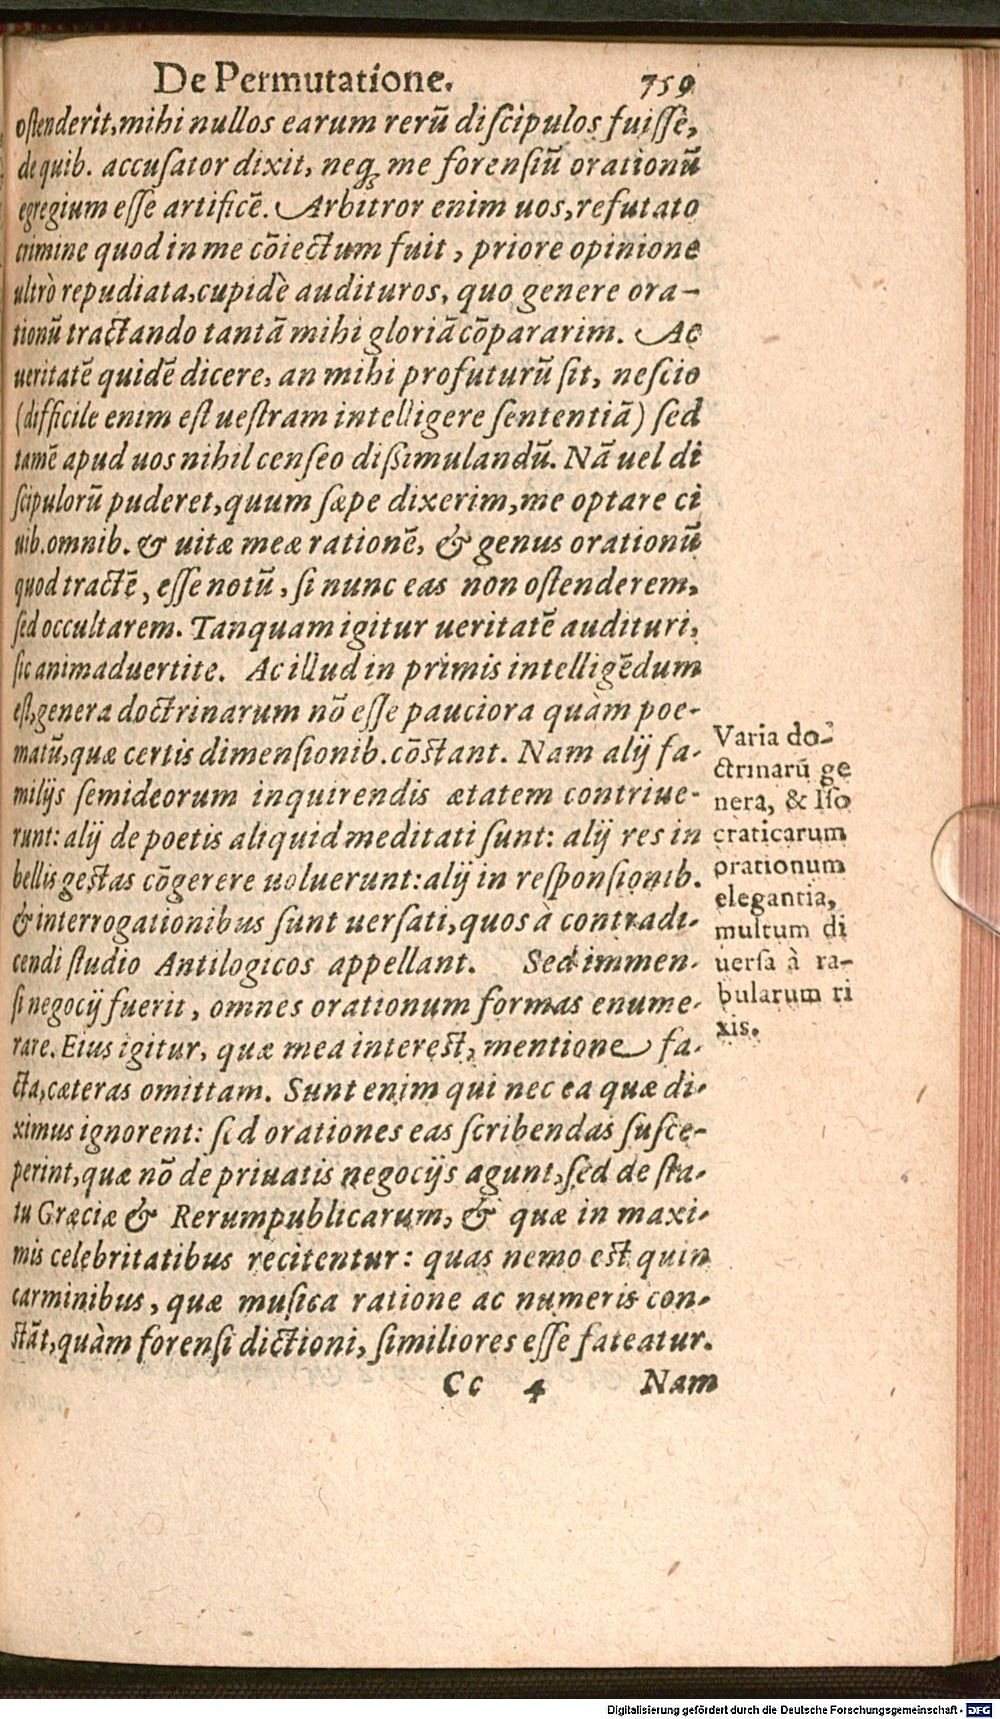 De Permutatione. 759
ostenderit, mihi nullos earum rerū discipulos fuisse,
de quib. accusator dixit, neq; me forensiū orationū
egregium esse artificē. Arbitror enim uos, refutato
crimine quod in me cōiectum fuit, priore opinione
ultrò repudiata, cupidè audituros, quo genere ora-
tionū tractando tantā mihi gloriā cōpararim. Ac
ueritatē quidē dicere, an mihi profuturū sit, nescio
(difficile enim est uestram intelligere sententiā) sed
tamē apud uos nihil censeo dißimulandū. Nā uel di
scipulorū puderet, quum sæpe dixerim, me optare ci
uib. omnib. & uitæ meæ rationē, & genus orationū
quod tractē, esse notū, si nunc eas non ostenderem,
sed occultarem. Tanquam igitur ueritatē audituri,
sic animaduertite. Ac illud in primis intelligēdum
est, genera doctrinarum nō esse pauciora quàm poe-
matū, quæ certis dimensionib. cōstant. Nam alij fa-
milijs semideorum inquirendis ætatem contriue-
runt: alij de poetis aliquid meditati sunt: alij res in
bellis gestas cōgerere uoluerunt: alij in responsionib.
& interrogationibus sunt uersati, quos à contradi-
cendi studio Antilogicos appellant. Sed immen-
si negocij fuerit, omnes orationum formas enume-
rare. Eius igitur, quæ mea interest, mentione fa-
cta, cæteras omittam. Sunt enim qui nec ea quæ di-
ximus ignorent: sed orationes eas scribendas susce-
perint, quæ nō de priuatis negocijs agunt, sed de sta-
tu Græciæ & Rerumpublicarum, & quæ in maxi-
mis celebritatibus recitentur: quas nemo est quin
carminibus, quæ musica ratione ac numeris con-
stāt, quàm forensi dictioni, similiores esse fateatur.
Cc 4 Nam
Varia do-
ctrinarū ge
nera, & Iso
craticarum
orationum
elegantia,
multum di
uersa à ra-
bularum ri
xis.
Digitalisierung gefördert durch die Deutsche Forschungsgemeinschaft - DFG